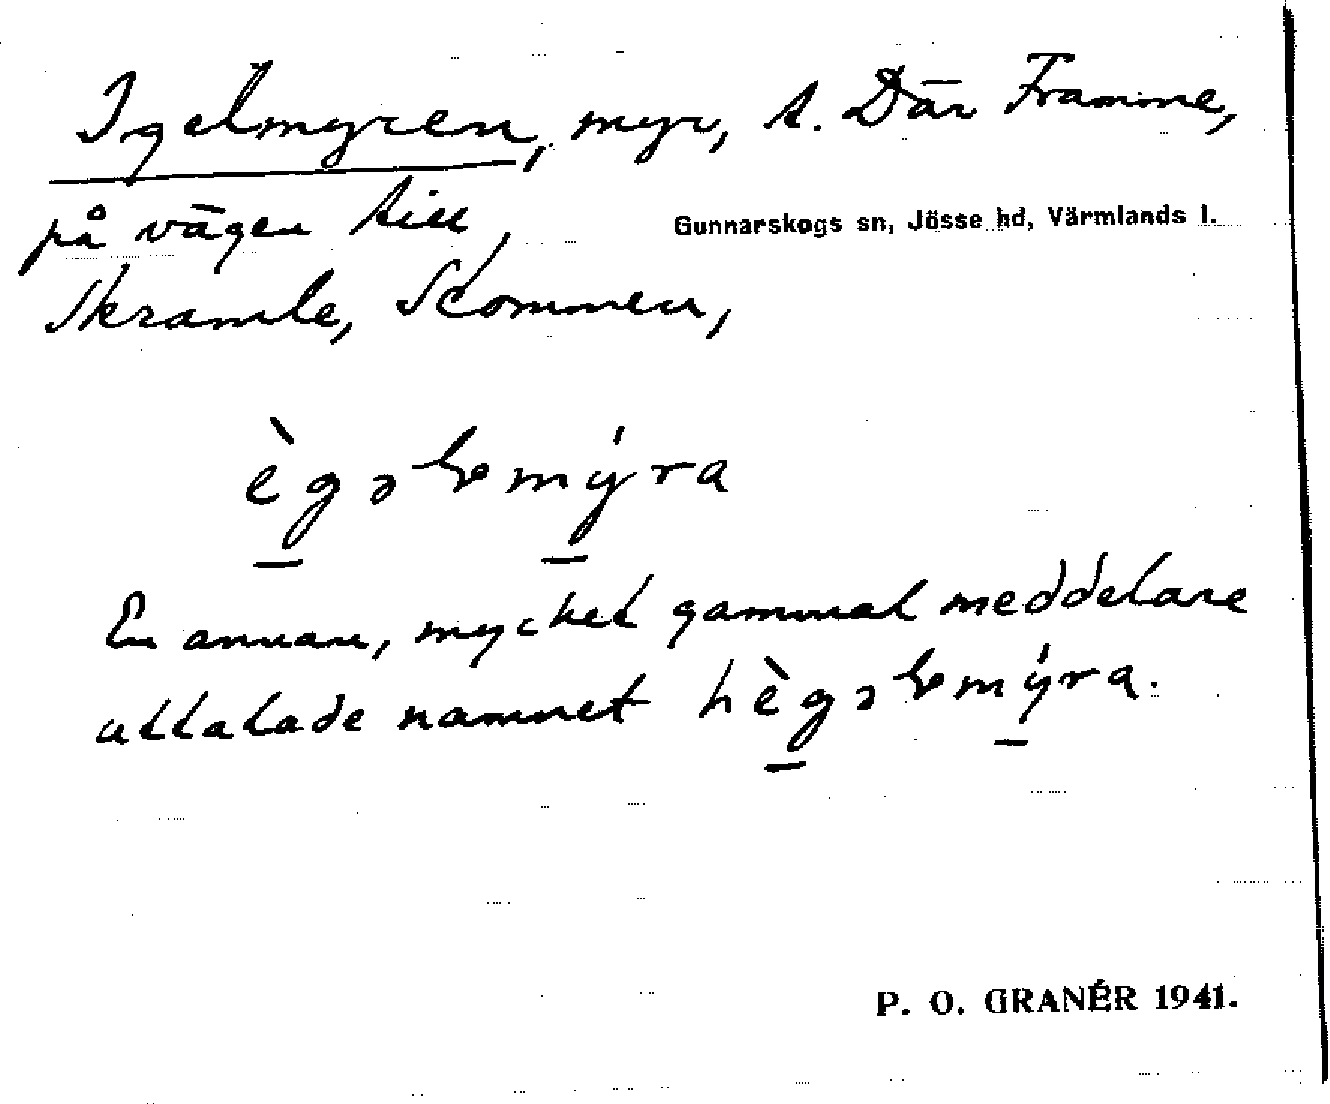 Igelmyren, myr, t. Där Framme,
på vägen till
Gunnarskogs sn, Jösse hd, Värmlands l.
Skramle, Skommen,
ègəɭmýra
En annan, mycket gammal meddelare
uttalade namnet hègəɭmýra.
P. O. GRANÉR 1941.